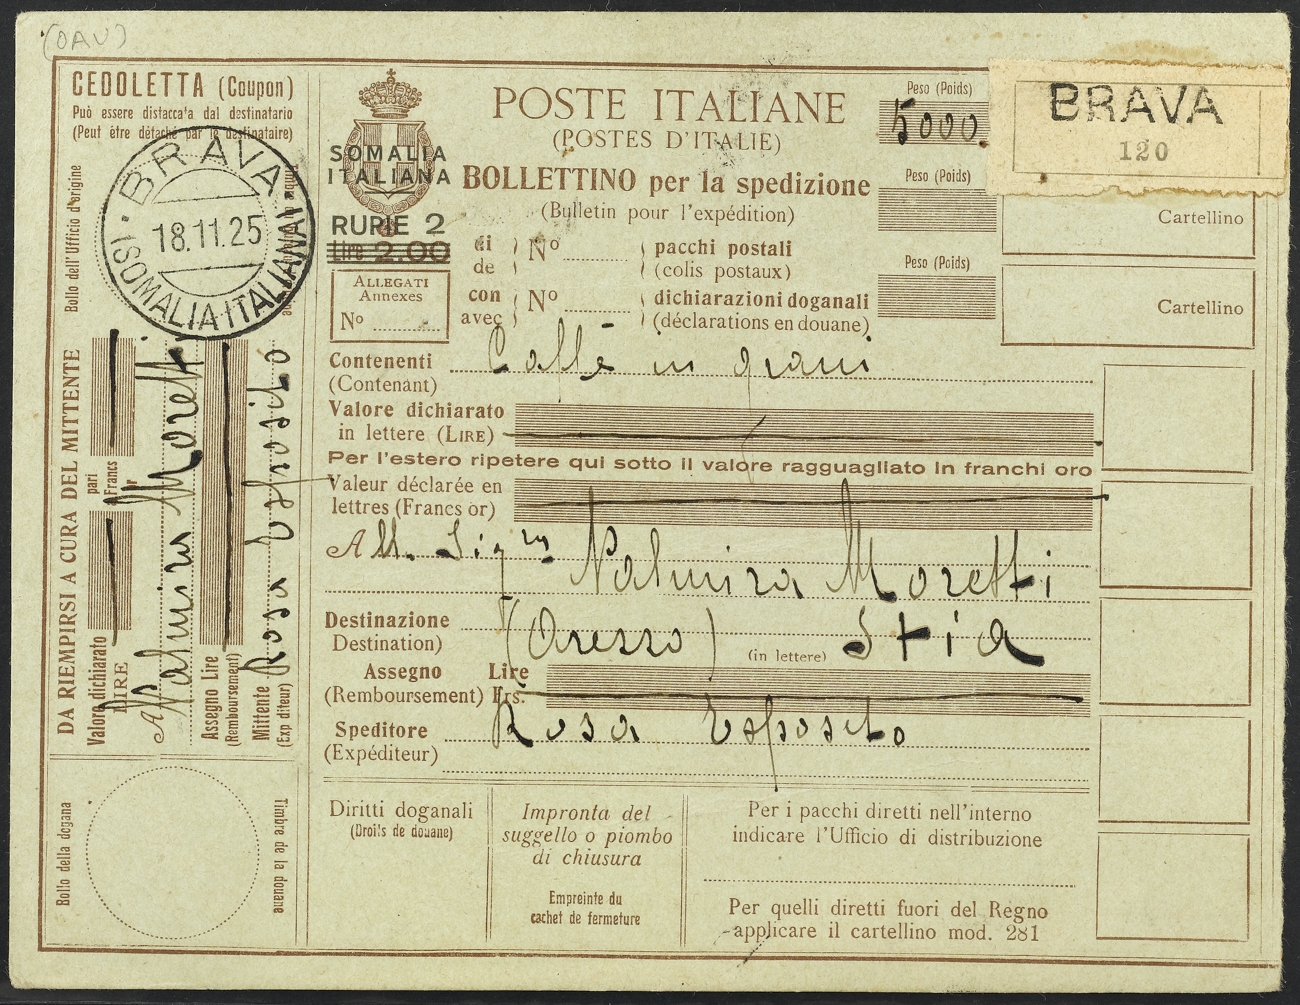 (OAU)
CEDOLETTA (Coupon)
Può essere distacca'a dal destinatario
(Peut être détaché par le destinataire)
Bollo dell'Ufficio d'origine
BRAVA
18.11.25
(SOMALIA ITALIANA)
DA RIEMPIRSI A CURA DEL MITTENTE
Valore dichiarato
LIRE
pari
Francs
A Palmira Moretti
Assegno Lire
(Remboursement)
Mittente
(Exp diteur)
Rosa Esposito
Bollo della dogana
Timbre de la douane
SOMALIA
ITALIANA
RUPIE 2
Lire 2.00
ALLEGATI
Annexes
No
POSTE ITALIANE
(POSTES D'ITALIE)
BOLLETTINO per la spedizione
(Bulletin pour l'expédition)
di
de
No
pacchi postali
(colis postaux)
con
avec
No
dichiarazioni doganali
(déclarations en douane)
Peso (Poids)
5000
Peso (Poids)
Peso (Poids)
BRAVA
120
Cartellino
Cartellino
Contenenti
(Contenant)
Caffè in grani
Valore dichiarato
in lettere (LIRE)
Per l'estero ripetere qui sotto il valore ragguagliato in franchi oro
Valeur déclarée en
lettres (Francs or)
A Palmira Moretti
Destinazione
Destination)
(Arezzo)
(in lettere)
Stia
Assegno
(Remboursement)
Lire
Frs.
Speditore
(Expéditeur)
Rosa Esposito
Diritti doganali
(Droits de douane)
Impronta del
suggello o piombo
di chiusura
Empreinte du
cachet de fermeture
Per i pacchi diretti nell'interno
indicare l'Ufficio di distribuzione
Per quelli diretti fuori del Regno
applicare il cartellino mod. 281